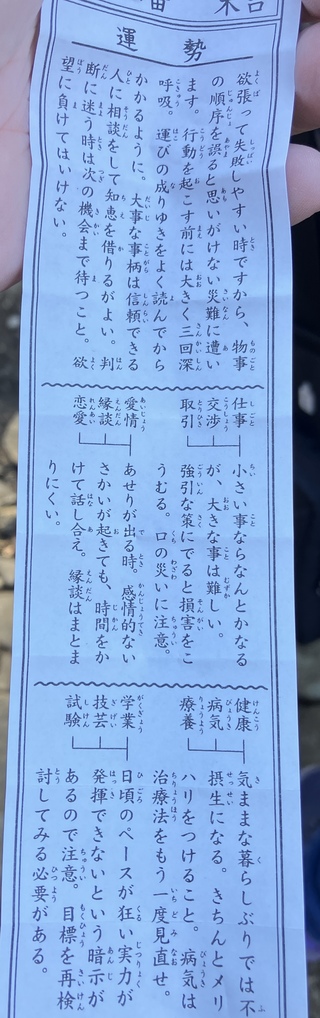 末吉
運勢
欲張って失敗しやすい時ですから、物事
の順序を誤ると思いがけない災難に遭い
ます。行動を起こす前には大きく三回深
呼吸。運びの成りゆきをよく読んでから
かかるように。大事な事柄は信頼できる
人に相談をして知恵を借りるがよい。判
断に迷う時は次の機会まで待つこと。欲
望に負けてはいけない。
仕事
交渉
取引
小さい事ならなんとかなる
が、大きな事は難しい。
強引な策にでると損害をこ
うむる。口の災いに注意。
愛情
縁談
恋愛
あせりが出る時。感情的ない
さかいが起きても、時間をか
けて話し合え。縁談はまとま
りにくい。
健康
病気
療養
気ままな暮らしぶりでは不
摂生になる。きちんとメリ
ハリをつけること。病気は
治療法をもう一度見直せ。
学業
技芸
試験
日頃のペースが狂い実力が
発揮できないという暗示が
あるので注意。目標を再検
討してみる必要がある。